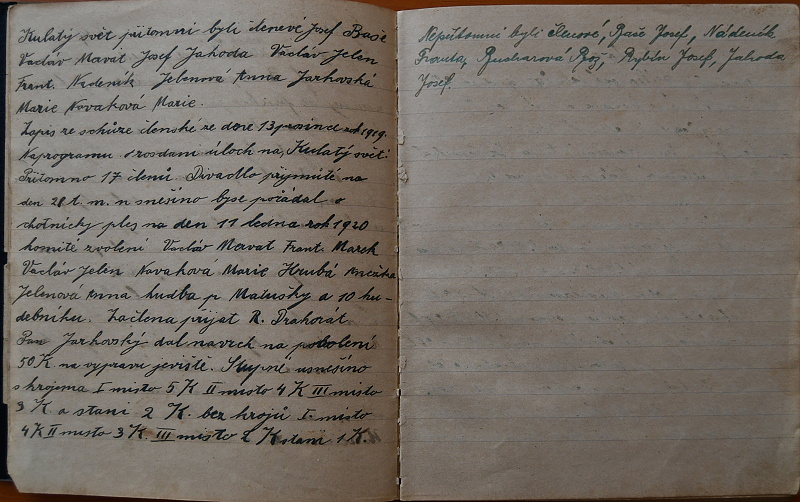 Kulatý svět přítomni byli členové Josef Bače
Václav Mavat Josef Jahoda Václav Jelen
Frant. Nedeník Jelenová Anna Jarkovská
Marie Novaková Marie.
Zapis ze schůze členské ze dne 13 prosince rok 1919.
Naprogramu 1 rozdaní úloch na, Kulatý svět.
Přítomno 17 členů. Divadlo přijmuté na
den 28 t. m. usnešino byse pořádal
chotnický ples na den 11 ledna rok 1920
komité zvolení Vaclav Mavat Frant. Marek
Vaclav Jelen Novaková Marie Hrubá Anežka
Jelenová Anna hudba p Matušky a 10 hu-
debníku. Začlena přijat R. Drahorát
Pan Jarkovský dal navrch na povolení
50 K na vypravu jeviště. Stupné usnešino
s krojema I misto 5 K II misto 4 K III misto
3 K a staní 2 K. bez krojů I. misto
4 K II misto 3 K. III misto 2 K staní 1 K.
Nepřítomni byli členové, Bače Josef, Nádeník
Franta, Bucharová Bož, Rybín Josef, Jahoda
Josef.